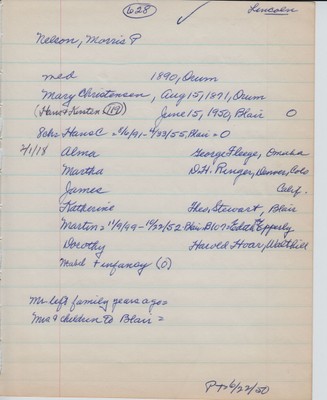 628
Lincoln
Nelson, Morris P
md 1890, Orum
Mary Christensen, Aug 15, 1871, Orum
(Hans & Kirsten 119) June 15, 1950, Blair 0
8chr Hans C = 5/6/91- 4/23/55, Blair = 0
2/1/18 Alma George Fluge, Omaha
Martha D.H. Ringer, Denver, Colo
James Calif.
Katherine Theo, Stewart, Blair
Martin = 1/9/99-10/22/52 Blair B107 = Edith Epperly
Dorothy Harold Hoar, Walthill
Mabel + infancy (0)
Mr left family years ago =
Mrs & children to Blair =
P+ 6/22/50